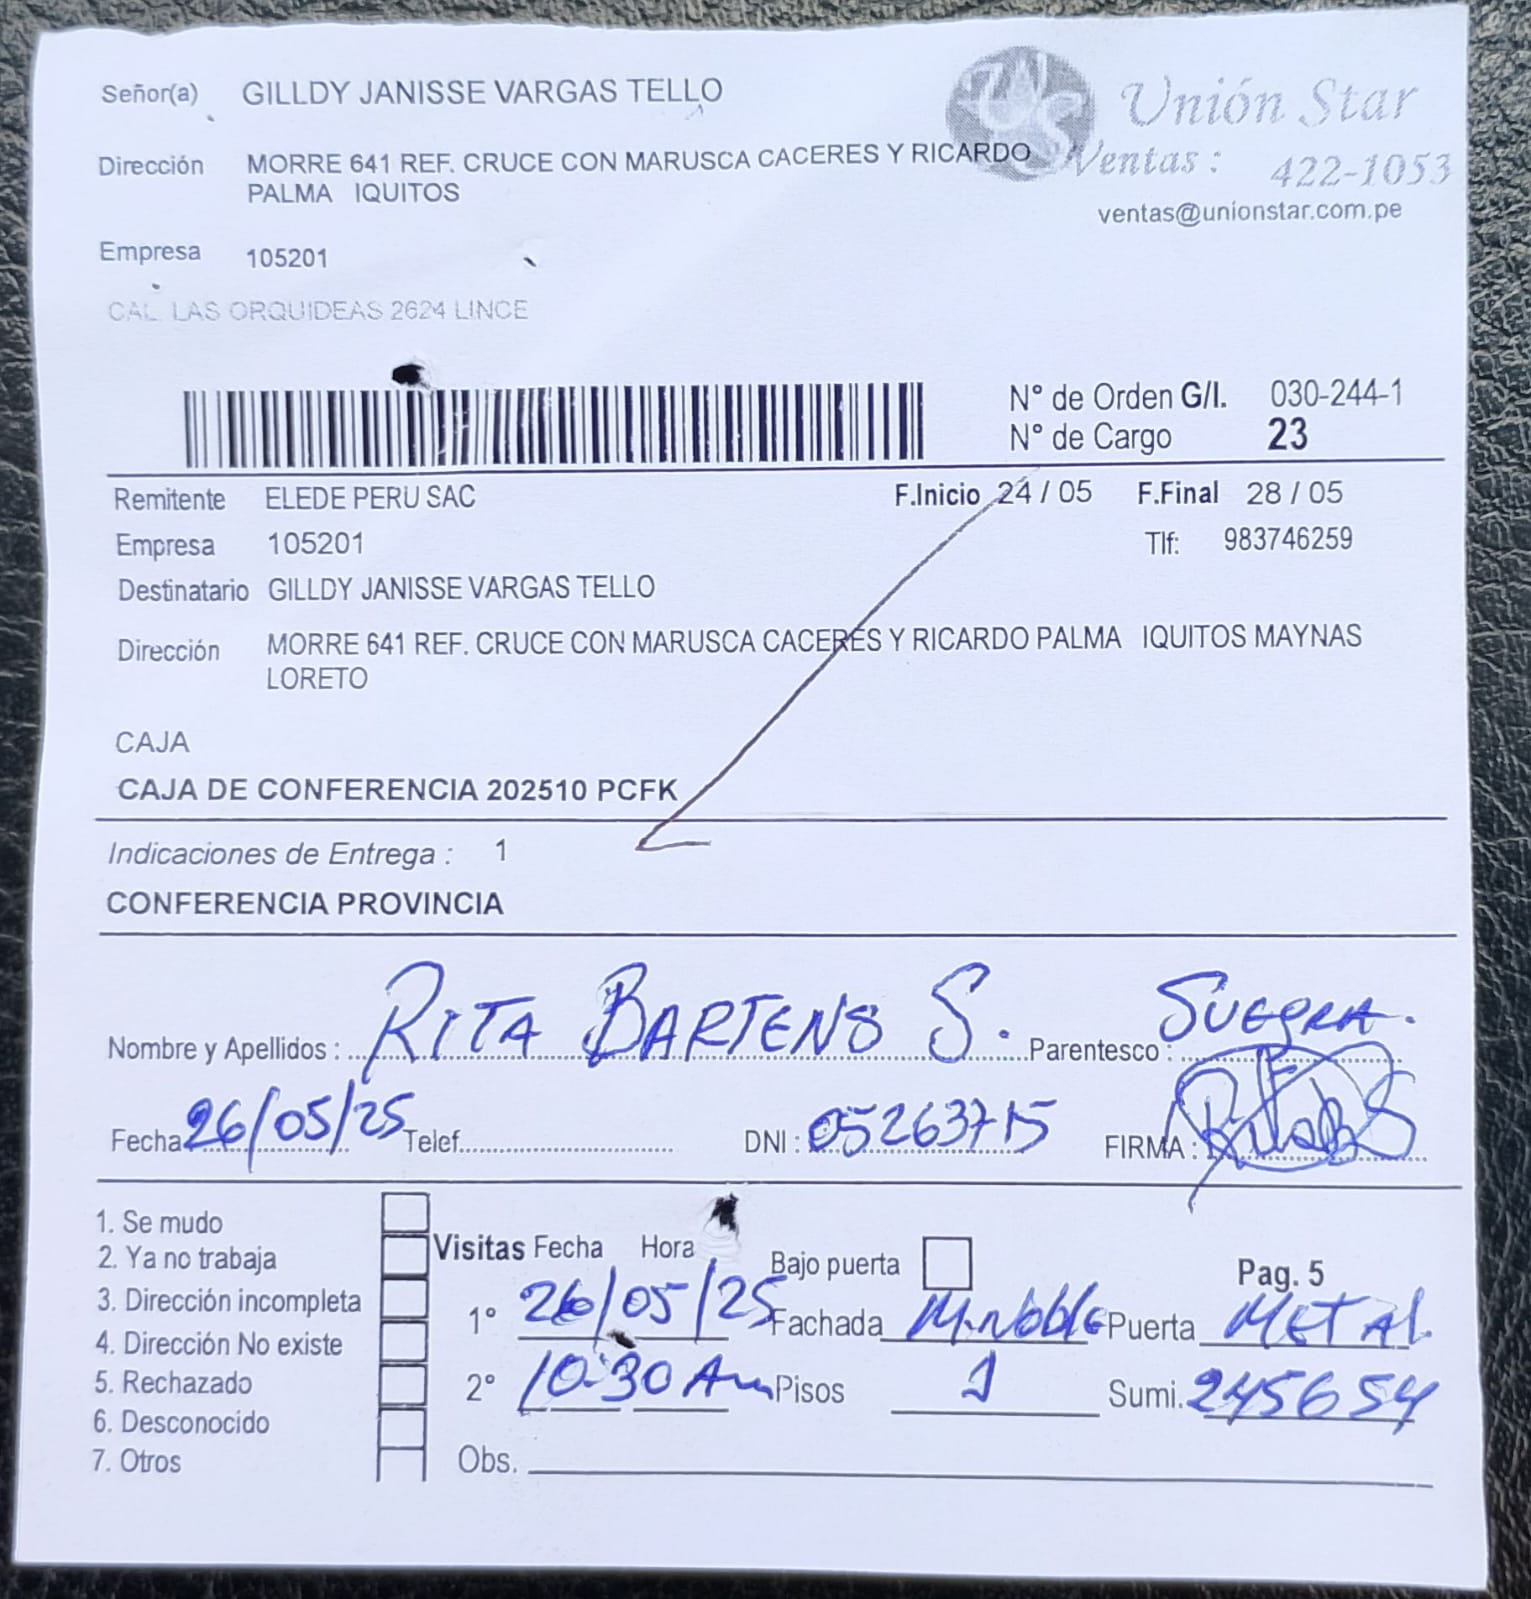 Señor(a) GILLDY JANISSE VARGAS TELLO
Unión Star
Dirección MORRE 641 REF. CRUCE CON MARUSCA CACERES Y RICARDO
PALMA IQUITOS
Ventas : 422-1053
ventas@unionstar.com.pe
Empresa 105201
CAL. LAS ORQUIDEAS 2624 LINCE
N° de Orden G/I. 030-244-1
N° de Cargo 23
Remitente ELEDE PERU SAC F.Inicio 24 / 05 F.Final 28 / 05
Empresa 105201 Tlf: 983746259
Destinatario GILLDY JANISSE VARGAS TELLO
Dirección MORRE 641 REF. CRUCE CON MARUSCA CACERES Y RICARDO PALMA IQUITOS MAYNAS
LORETO
CAJA
CAJA DE CONFERENCIA 202510 PCFK
Indicaciones de Entrega : 1
CONFERENCIA PROVINCIA
Nombre y Apellidos : RITA BARTENS S. Parentesco : SUEGRA.
Fecha 26/05/25 Telef. DNI : 05263715 FIRMA :
1. Se mudo
2. Ya no trabaja
3. Dirección incompleta
4. Dirección No existe
5. Rechazado
6. Desconocido
7. Otros
Visitas Fecha Hora Bajo puerta Pag. 5
1° 26/05/25 Fachada M.Noble Puerta METAL.
2° 10:30 Am Pisos 1 Sumi. 245654
Obs.